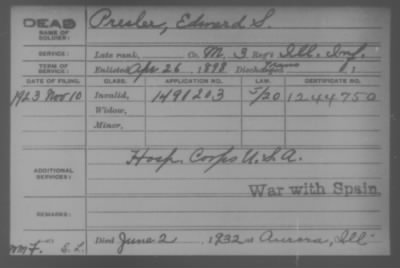 DEAD
NAME OF SOLDIER: Presler, Edward S.
SERVICE: Late rank, Co. M, 3 Reg't Ill. Inf.
TERM OF SERVICE: Enlisted Apr 26, 1898 Discharged
DATE OF FILING. CLASS. APPLICATION NO. LAW. CERTIFICATE NO.
1923 Nov 10 Invalid, 1491203 5/20 1244750
Widow,
Minor,
ADDITIONAL SERVICES: Hosp. Corps U.S.A.
War with Spain.
REMARKS:
Died June 2 1932 at Aurora, Ill